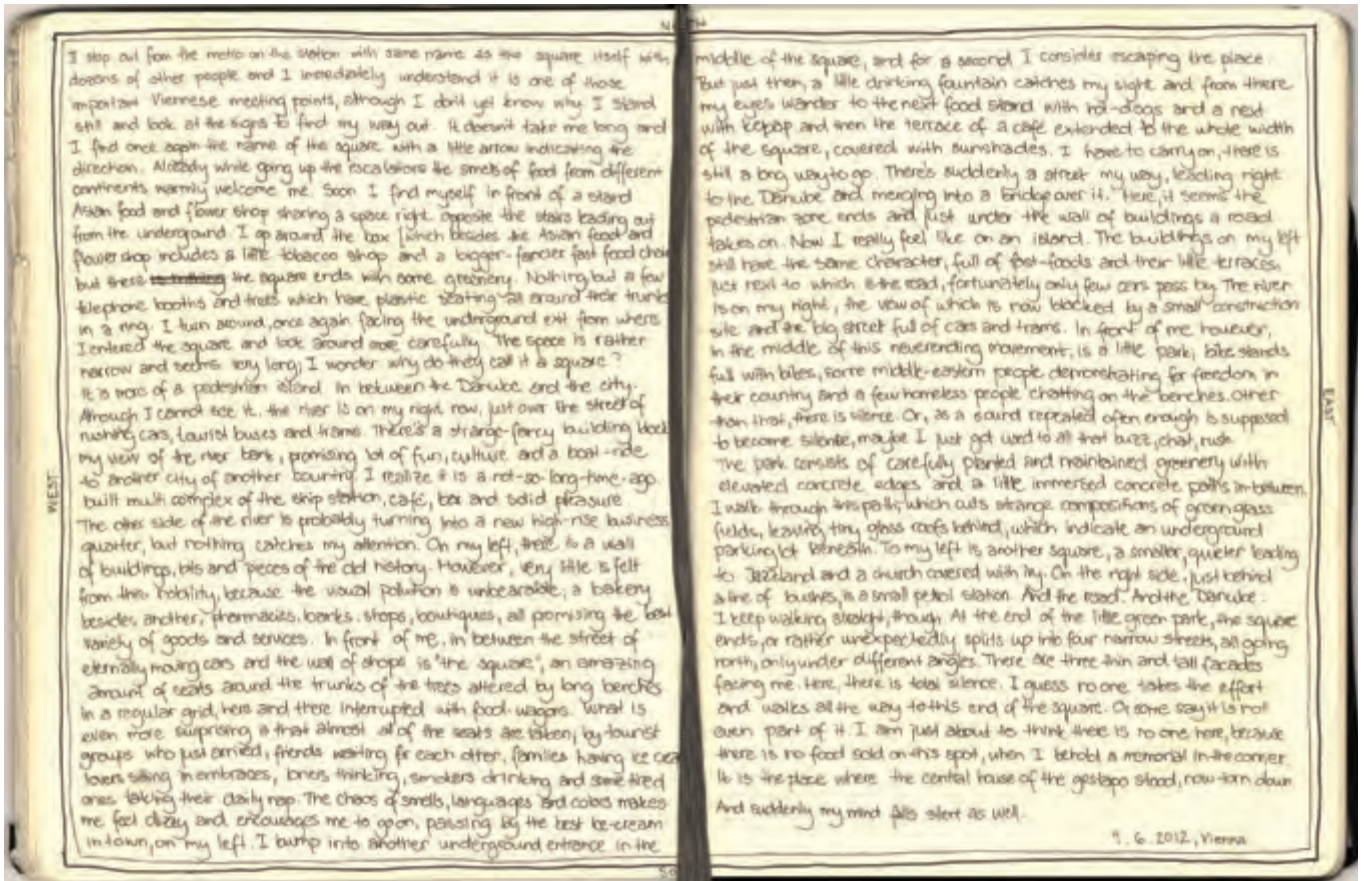 NORTH
I step out from the metro on the station with same name as the square itself with
dozens of other people and I immediately understand it is one of those
important Viennese meeting points, although I don't yet know why. I stand
still and look at the signs to find my way out. It doesn't take me long and
I find once again the name of the square with a little arrow indicating the
direction. Already while going up the escalators the smells of food from different
continents warmly welcome me. Soon I find myself in front of a stand
Asian food and flower shop sharing a space right opposite the stairs leading out
from the underground. I go around the box (which besides the Asian food and
flower shop includes a little tobacco shop and a bigger-fancier fast food chain
but there the square ends with some greenery. Nothing but a few
telephone booths and trees which have plastic seating all around their trunks
in a ring. I turn around, once again facing the underground exit from where
I entered the square and look around more carefully. The space is rather
narrow and seems very long; I wonder why do they call it a square?
It is more of a pedestrian island. In between the Danube and the city.
Although I cannot see it, the river is on my right now, just over the street of
rushing cars, tourist buses and trams. There's a strange-fancy building block
my view of the river bank, promising lot of fun, culture and a boat-ride
to another city of another country. I realize it is a not-so-long-time-ago
built multi complex of the ship station, café, bar and solid pleasure
The other side of the river is probably turning into a new high-rise business
quarter, but nothing catches my attention. On my left, there is a wall
of buildings, bits and pieces of the old history. However, very little is felt
from this nobility, because the visual pollution is unbearable; a bakery
besides another, pharmacies, banks, shops, boutiques, all promising the best
variety of goods and services. In front of me, in between the street of
eternally moving cars and the wall of shops is "the square", an amazing
amount of seats around the trunks of the trees altered by long benches
in a regular grid, here and there interrupted with food-wagons. What is
even more surprising is that almost all of the seats are taken; by tourist
groups who just arrived, friends waiting for each other, families having ice crea
lovers sitting in embraces, loners thinking, smokers drinking and some tired
ones taking their daily nap. The chaos of smells, languages and colors makes
me feel dizzy and encourages me to go on, passing by the best ice-cream
in town, on my left. I bump into another underground entrance in the
WEST
middle of the square, and for a second I consider escaping the place.
But just then, a little drinking fountain catches my sight and from there
my eyes wander to the next food stand with hot-dogs and a next
with kepap and then the terrace of a café extended to the whole width
of the square, covered with sunshades. I have to carry on, there is
still a long way to go. There's suddenly a street my way, leading right
to the Danube and merging into a bridge over it. Here, it seems the
pedestrian zone ends and just under the wall of buildings a road
takes on. Now I really feel like on an island. The buildings on my left
still have the same character, full of fast-foods and their little terraces,
just next to which is the road, fortunately only few cars pass by. The river
is on my right, the view of which is now blocked by a small constriction
site and the big street full of cars and trams. In front of me however,
in the middle of this neverending movement, is a little park; bike stands
full with bikes, some middle-eastern people demonstrating for freedom in
their country and a few homeless people chatting on the benches. Other
than that, there is silence. Or, as a sound repeated often enough is supposed
to become silente, maybe I just got used to all that buzz, chat, rush.
The park consists of carefully planted and maintained greenery with
elevated concrete edges and a little immersed concrete paths in-between.
I walk through this path, which cuts strange compositions of green grass
fields, leaving tiny glass roofs behind, which indicate an underground
parking lot beneath. To my left is another square, a smaller, quieter leading
to Jazzland and a church covered with ivy. On the right side, just behind
a line of bushes, is a small petrol station. And the road. And the Danube.
I keep walking straight, though. At the end of the little green park, the square
ends, or rather unexpectedly splits up into four narrow streets, all going
north, only under different angles. There are three thin and tall facades
facing me. Here, there is total silence. I guess no one takes the effort
and walks all the way to this end of the square. Or some say it is not
even part of it. I am just about to think there is no one here, because
there is no food sold on this spot, when I behold a memorial in the corner.
It is the place where the central house of the gestapo stood, now torn down.
And suddenly my mind falls silent as well.
9.6.2012, Vienna
EAST
SO